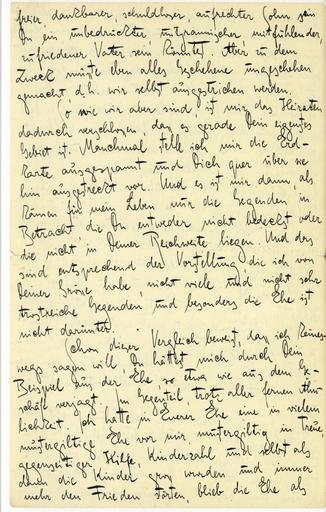 freier, dankbarer, schuldloser, aufrechter Sohn sein
Du ein unbedrückter untyrannischer mitfühlender
zufriedener Vater sein könntest. Aber zu dem
Zweck müsste eben alles Geschehene ungeschehen
gemacht d.h. wir selbst ausgestrichen werden.
So wie wir aber sind, ist mir das Heiraten
dadurch verschlossen, dass es gerade Dein eigenstes
Gebiet ist. Manchmal stelle ich mir die Erd-
karte ausgespannt und Dich quer über sie
hin ausgestreckt vor. Und es ist mir dann, als
kämen für mein Leben nur die Gegenden in
Betracht die Du entweder nicht bedeckst oder
die nicht in Deiner Reichweite liegen. Und das
sind entsprechend der Vorstellung die ich von
Deiner Grösse habe, nicht viele und nicht sehr
trostreiche Gegenden und besonders die Ehe ist
nicht darunter.
Schon dieser Vergleich beweist, dass ich keines-
wegs sagen will, Du hättest mich durch Dein
Beispiel aus der Ehe, so etwa wie aus dem Ge-
schäft verjagt. Im Gegenteil trotz aller fernen Ähn-
lichkeit. Ich hatte in Euerer Ehe eine in vielem
mustergiltige Ehe vor mir, mustergiltig in Treue,
gegenseitiger Hilfe, Kinderzahl und selbst als
dann die Kinder gross wurden und immer
mehr den Frieden störten, blieb die Ehe als